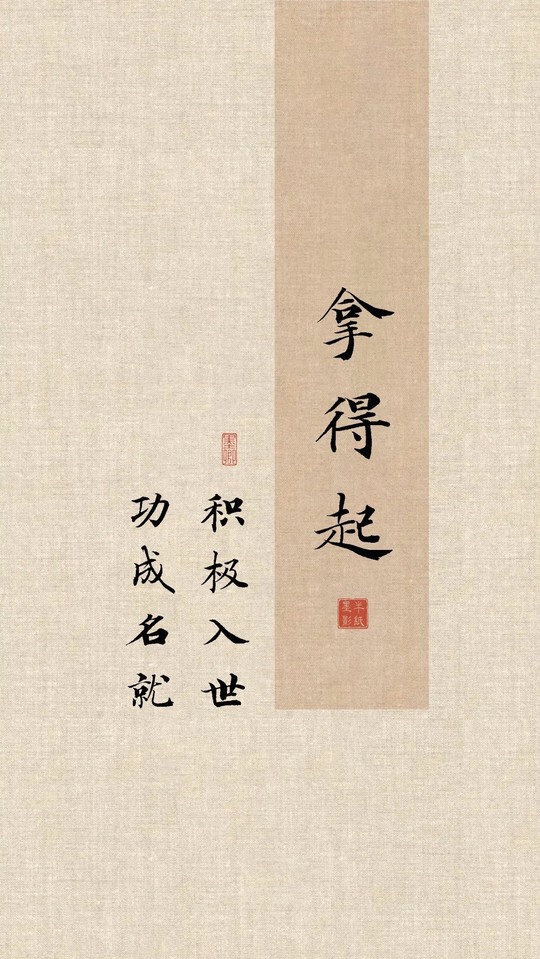 拿得起
半纸墨影
积极入世
功成名就